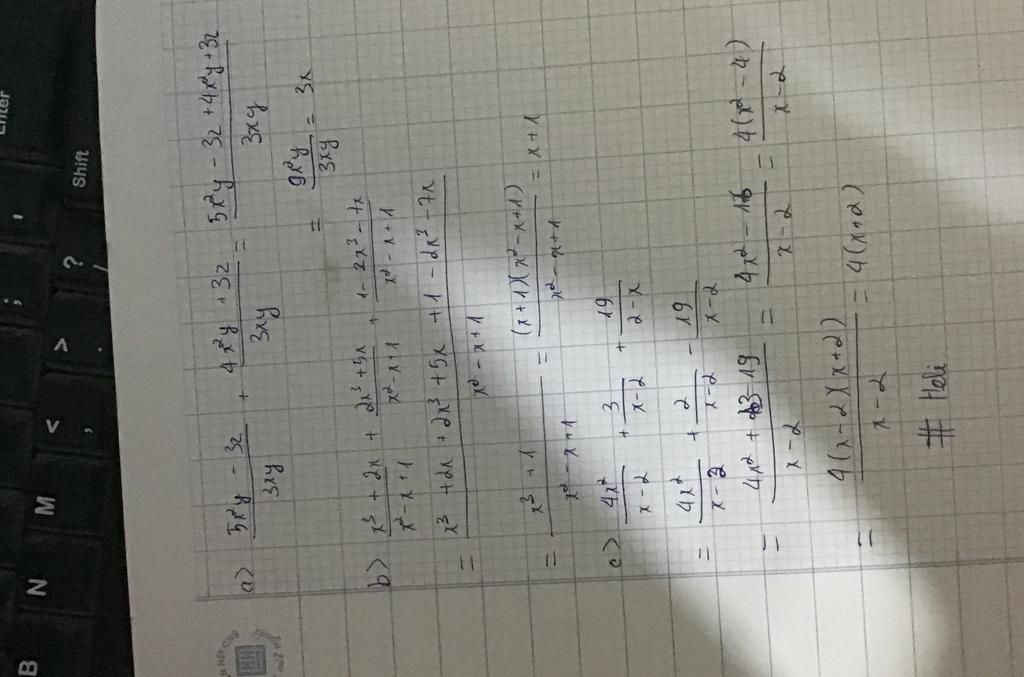 a) (5x²y - 3z)/(3xy) + (4x²y + 3z)/(3xy) = (5x²y - 3z + 4x²y + 3z)/(3xy)
= (9x²y)/(3xy) = 3x
b) (x³ + 2x)/(x² - x + 1) + (2x³ + 5x)/(x² - x + 1) + (1 - 2x³ - 7x)/(x² - x + 1)
= (x³ + 2x + 2x³ + 5x + 1 - 2x³ - 7x)/(x² - x + 1)
= (x³ + 1)/(x² - x + 1) = ((x + 1)(x² - x + 1))/(x² - x + 1) = x + 1
c) (4x²)/(x - 2) + 3/(x - 2) + 19/(2 - x)
= (4x²)/(x - 2) + 2/(x - 2) - 19/(x - 2)
= (4x² + 3 - 19)/(x - 2) = (4x² - 16)/(x - 2) = (4(x² - 4))/(x - 2)
= (4(x - 2)(x + 2))/(x - 2) = 4(x + 2)
Enter
Shift
?
/
>
.
<
,
;
M
N
B